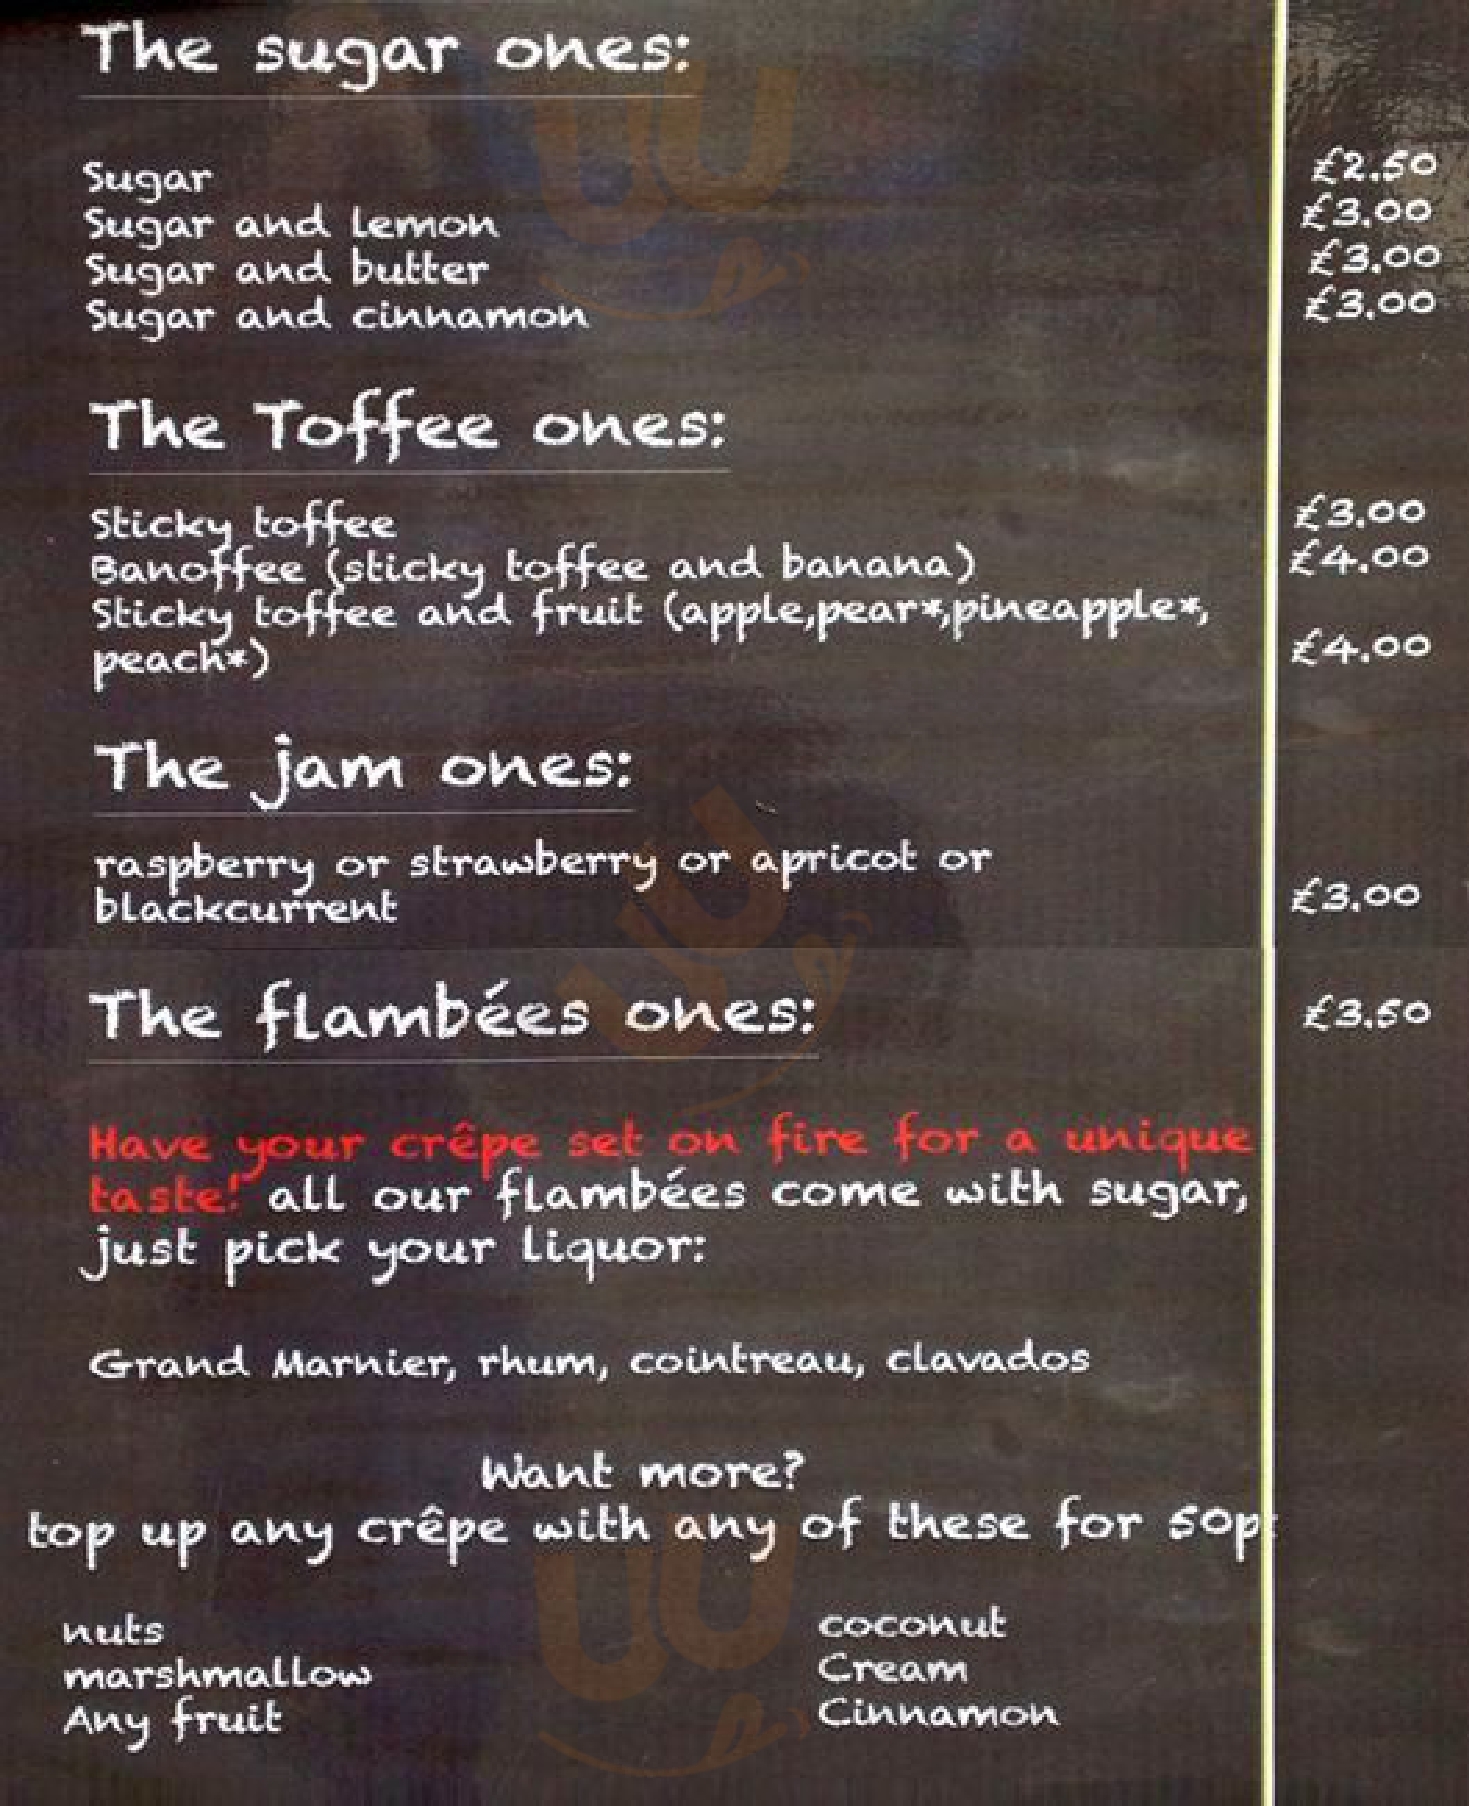 The sugar ones:
Sugar £2.50
Sugar and lemon £3.00
Sugar and butter £3.00
Sugar and cinnamon £3.00
The Toffee ones:
Sticky toffee £3.00
Banoffee (sticky toffee and banana) £4.00
Sticky toffee and fruit (apple,pear*,pineapple*,
peach*) £4.00
The jam ones:
raspberry or strawberry or apricot or
blackcurrent £3.00
The flambées ones: £3.50
Have your crêpe set on fire for a unique
taste! all our flambées come with sugar,
just pick your liquor:
Grand Marnier, rhum, cointreau, clavados
Want more?
top up any crêpe with any of these for 50p:
nuts coconut
marshmallow Cream
Any fruit Cinnamon